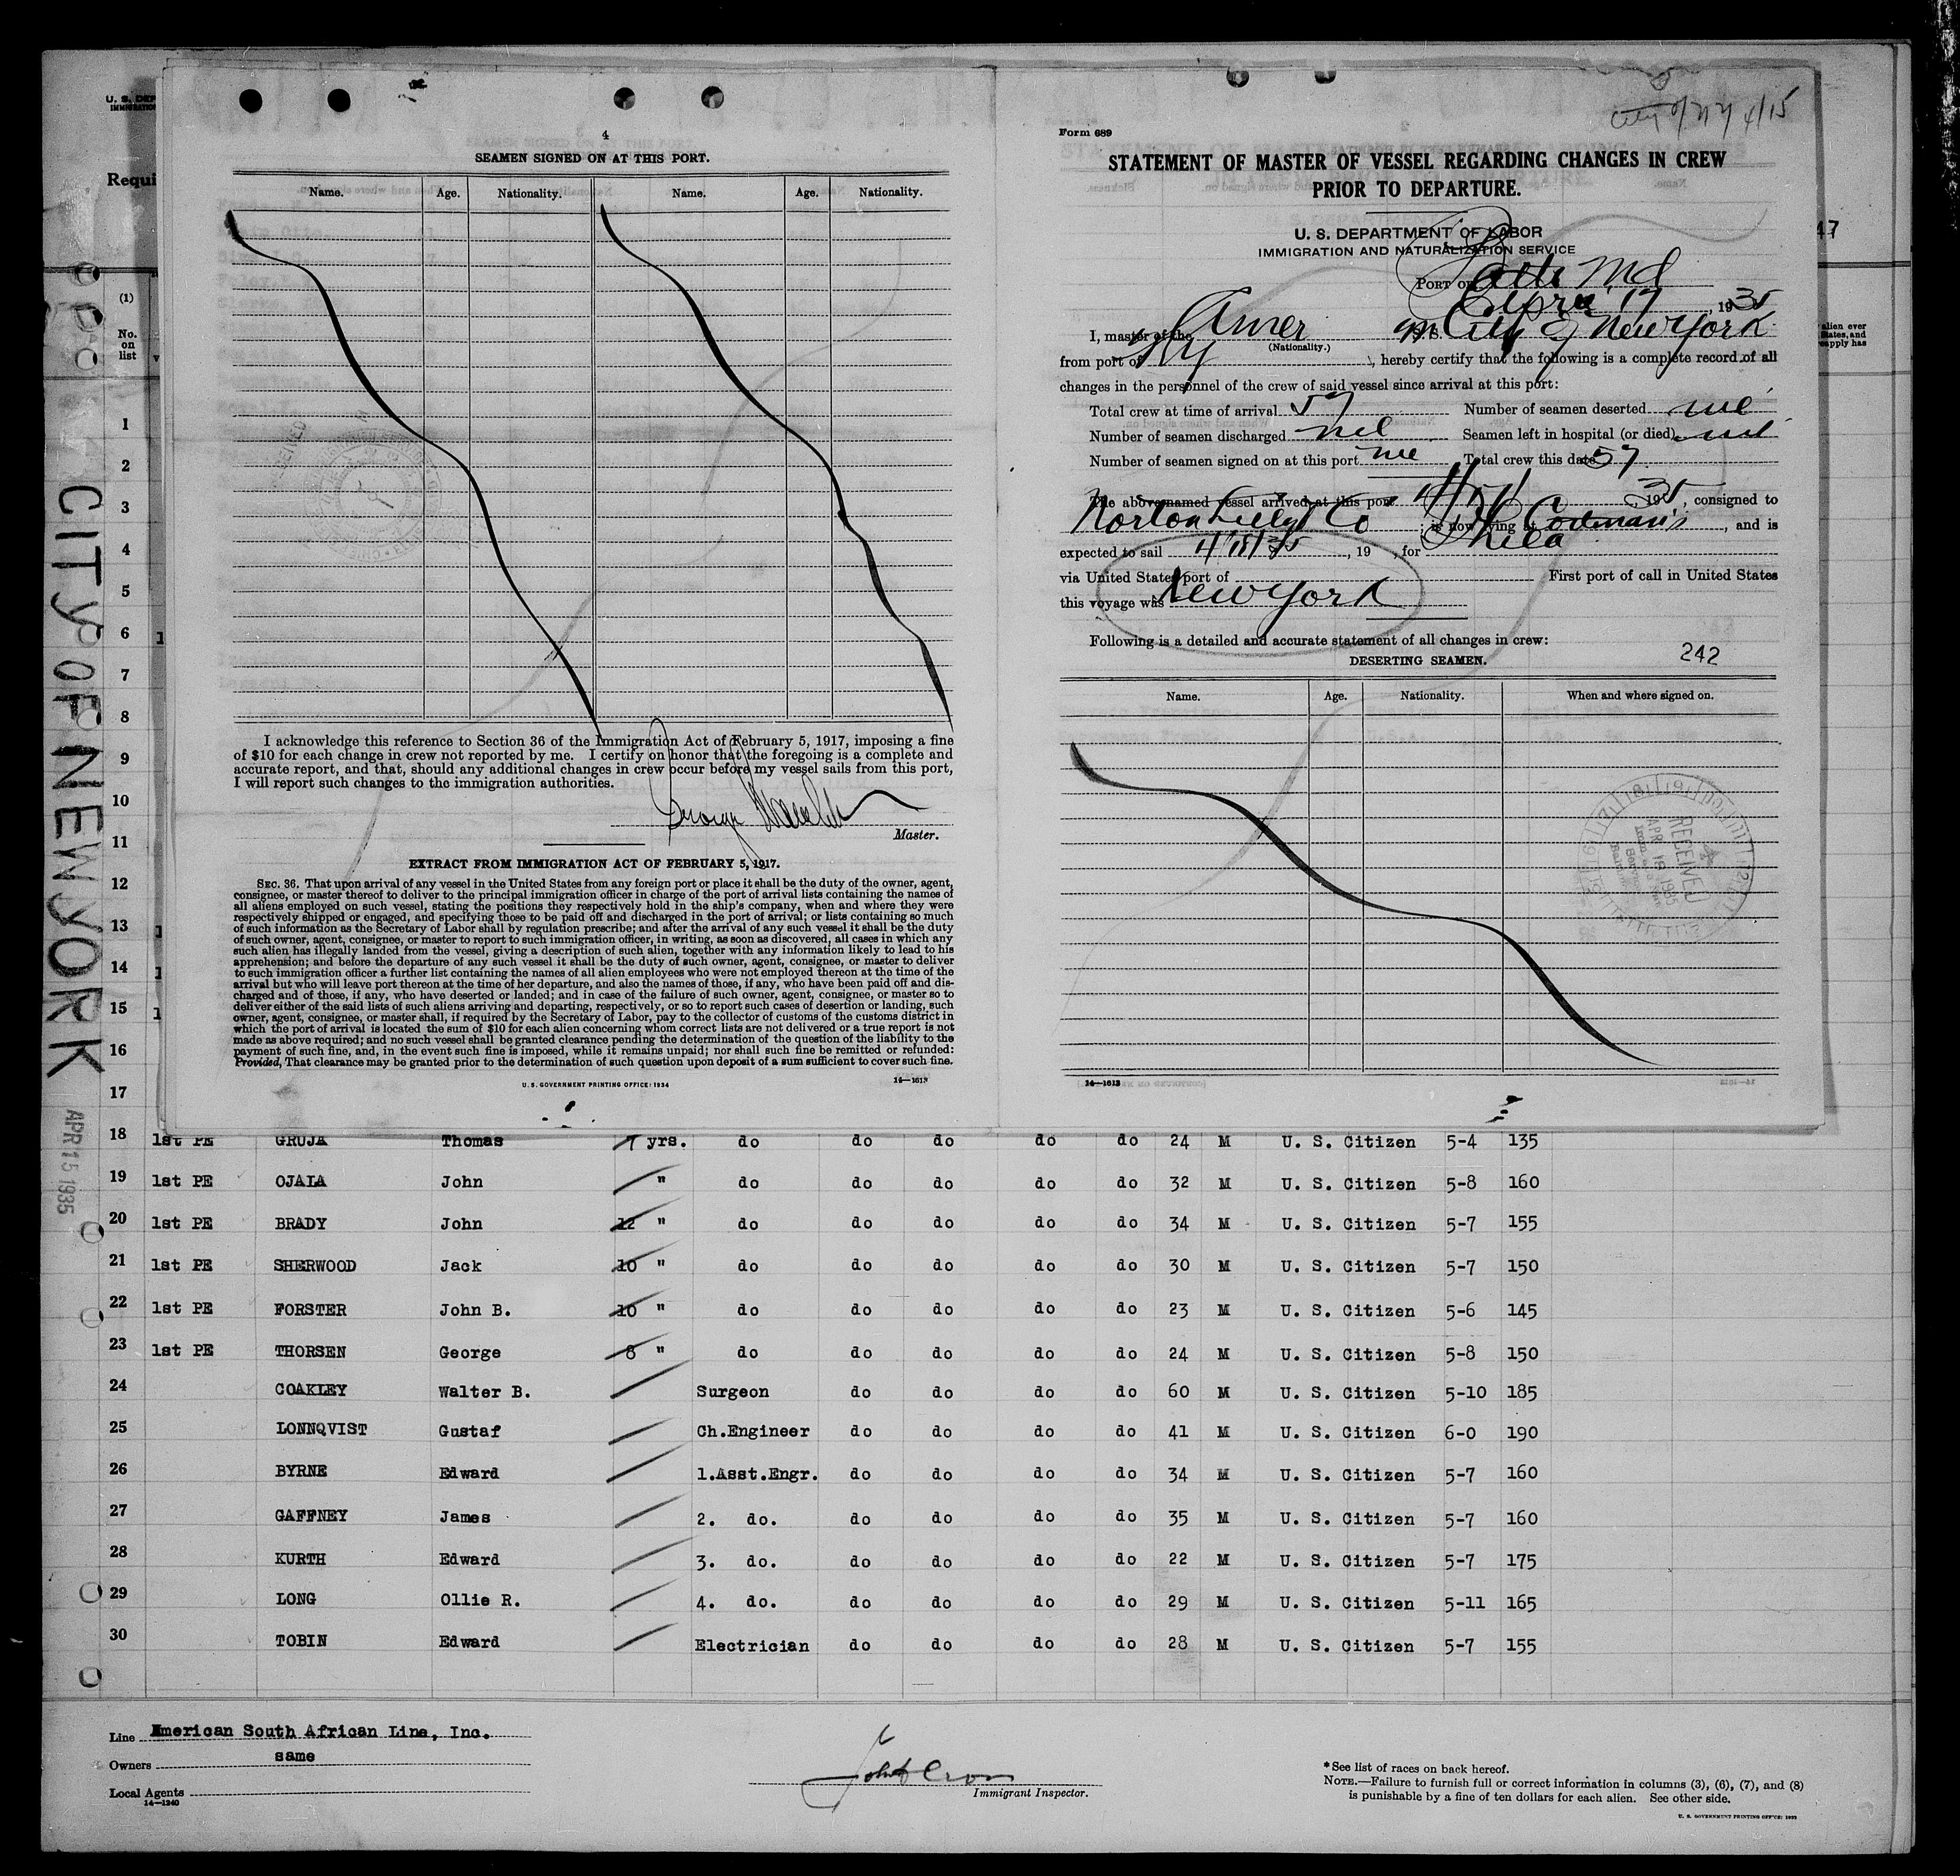 4
SEAMEN SIGNED ON AT THIS PORT.
Name. Age. Nationality. Name. Age. Nationality.
I acknowledge this reference to Section 36 of the Immigration Act of February 5, 1917, imposing a fine
of $10 for each change in crew not reported by me. I certify on honor that the foregoing is a complete and
accurate report, and that, should any additional changes in crew occur before my vessel sails from this port,
I will report such changes to the immigration authorities.
George
Master.
EXTRACT FROM IMMIGRATION ACT OF FEBRUARY 5, 1917.
SEC. 36. That upon arrival of any vessel in the United States from any foreign port or place it shall be the duty of the owner, agent,
consignee, or master thereof to deliver to the principal immigration officer in charge of the port of arrival lists containing the names of
all aliens employed on such vessel, stating the positions they respectively hold in the ship's company, when and where they were
respectively shipped or engaged, and specifying those to be paid off and discharged in the port of arrival; or lists containing so much
of such information as the Secretary of Labor shall by regulation prescribe; and after the arrival of any such vessel it shall be the duty
of such owner, agent, consignee, or master to report to such immigration officer, in writing, as soon as discovered, all cases in which any
such alien has illegally landed from the vessel, giving a description of such alien, together with any information likely to lead to his
apprehension; and before the departure of any such vessel it shall be the duty of such owner, agent, consignee, or master to deliver
to such immigration officer a further list containing the names of all alien employees who were not employed thereon at the time of the
arrival but who will leave port thereon at the time of her departure, and also the names of those, if any, who have been paid off and dis-
charged and of those, if any, who have deserted or landed; and in case of the failure of such owner, agent, consignee, or master so to
deliver either of the said lists of such aliens arriving and departing, respectively, or so to report such cases of desertion or landing, such
owner, agent, consignee, or master shall, if required by the Secretary of Labor, pay to the collector of customs of the customs district in
which the port of arrival is located the sum of $10 for each alien concerning whom correct lists are not delivered or a true report is not
made as above required; and no such vessel shall be granted clearance pending the determination of the question of the liability to the
payment of such fine, and, in the event such fine is imposed, while it remains unpaid; nor shall such fine be remitted or refunded:
Provided, That clearance may be granted prior to the determination of such question upon deposit of a sum sufficient to cover such fine.
U. S. GOVERNMENT PRINTING OFFICE: 1934 14—1613
City of NY 4/15
Form 689
STATEMENT OF MASTER OF VESSEL REGARDING CHANGES IN CREW
PRIOR TO DEPARTURE.
U. S. DEPARTMENT OF LABOR
IMMIGRATION AND NATURALIZATION SERVICE
PORT OF Balto Md
April 17, 1935
I, master of the Amer City of New York
(Nationality.)
from port of NY, hereby certify that the following is a complete record of all
changes in the personnel of the crew of said vessel since arrival at this port:
Total crew at time of arrival 57 Number of seamen deserted nil
Number of seamen discharged nil Seamen left in hospital (or died) nil
Number of seamen signed on at this port nil Total crew this date 57
The above-named vessel arrived at this port 1935, consigned to
Norton Lilly & Co; is now lying at, and is
expected to sail 4/18/35, 19 , for Phila
via United States port of First port of call in United States
this voyage was New York
Following is a detailed and accurate statement of all changes in crew:
DESERTING SEAMEN. 242
Name. Age. Nationality. When and where signed on.
RECEIVED
APR 18 1935
14—1613
CITY OF NEW YORK
APR 15 1935
U. S. DEP
IMMIGRATION
Requi
47
(1)
No.
on
list
alien ever
States, and
apply has
1
2
3
4
5
6
7
8
9
10
11
12
13
14
15
16
17
18 1st PE GRUJA Thomas 7 yrs. do do do do do 24 M U. S. Citizen 5-4 135
19 1st PE OJALA John " do do do do do 32 M U. S. Citizen 5-8 160
20 1st PE BRADY John 12 " do do do do do 34 M U. S. Citizen 5-7 155
21 1st PE SHERWOOD Jack 10 " do do do do do 30 M U. S. Citizen 5-7 150
22 1st PE FORSTER John B. 10 " do do do do do 23 M U. S. Citizen 5-6 145
23 1st PE THORSEN George 8 " do do do do do 24 M U. S. Citizen 5-8 150
24 COAKLEY Walter B. Surgeon do do do do 60 M U. S. Citizen 5-10 185
25 LONNQVIST Gustaf Ch.Engineer do do do do 41 M U. S. Citizen 6-0 190
26 BYRNE Edward 1.Asst.Engr. do do do do 34 M U. S. Citizen 5-7 160
27 GAFFNEY James 2. do. do do do do 35 M U. S. Citizen 5-7 160
28 KURTH Edward 3. do. do do do do 22 M U. S. Citizen 5-7 175
29 LONG Ollie R. 4. do. do do do do 29 M U. S. Citizen 5-11 165
30 TOBIN Edward Electrician do do do do 28 M U. S. Citizen 5-7 155
Line American South African Line, Inc.
Owners same
Local Agents
14—1240
Immigrant Inspector.
* See list of races on back hereof.
NOTE.—Failure to furnish full or correct information in columns (3), (6), (7), and (8)
is punishable by a fine of ten dollars for each alien. See other side.
U. S. GOVERNMENT PRINTING OFFICE: 1933